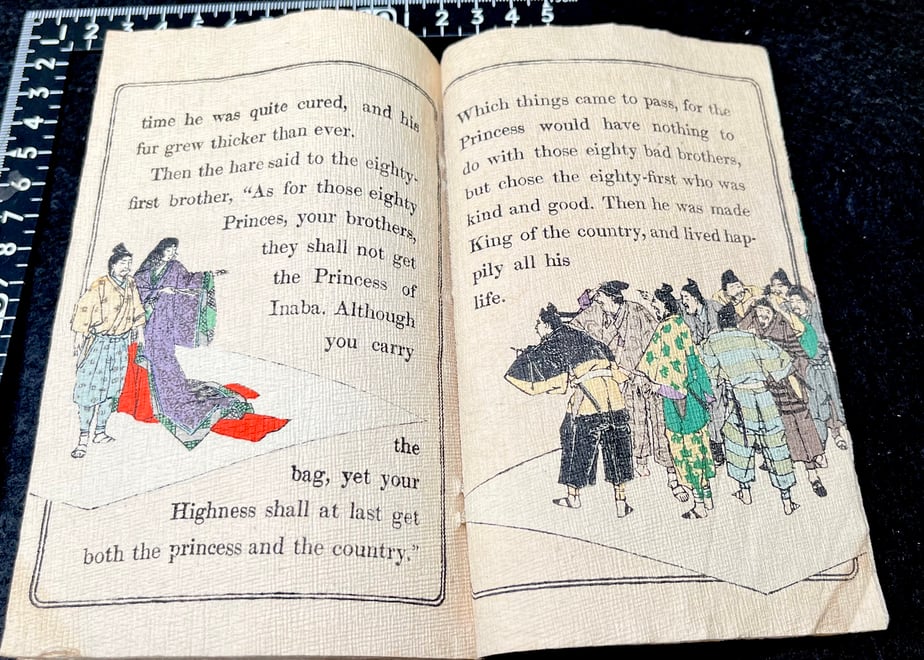 1 2 3 4 5 6 7 8
2 3 4 5
time he was quite cured, and his
fur grew thicker than ever.
Then the hare said to the eighty-
first brother, “As for those eighty
Princes, your brothers,
they shall not get
the Princess of
Inaba. Although
you carry
the
bag, yet your
Highness shall at last get
both the princess and the country.”
Which things came to pass, for the
Princess would have nothing to
do with those eighty bad brothers,
but chose the eighty-first who was
kind and good. Then he was made
King of the country, and lived hap-
pily all his
life.